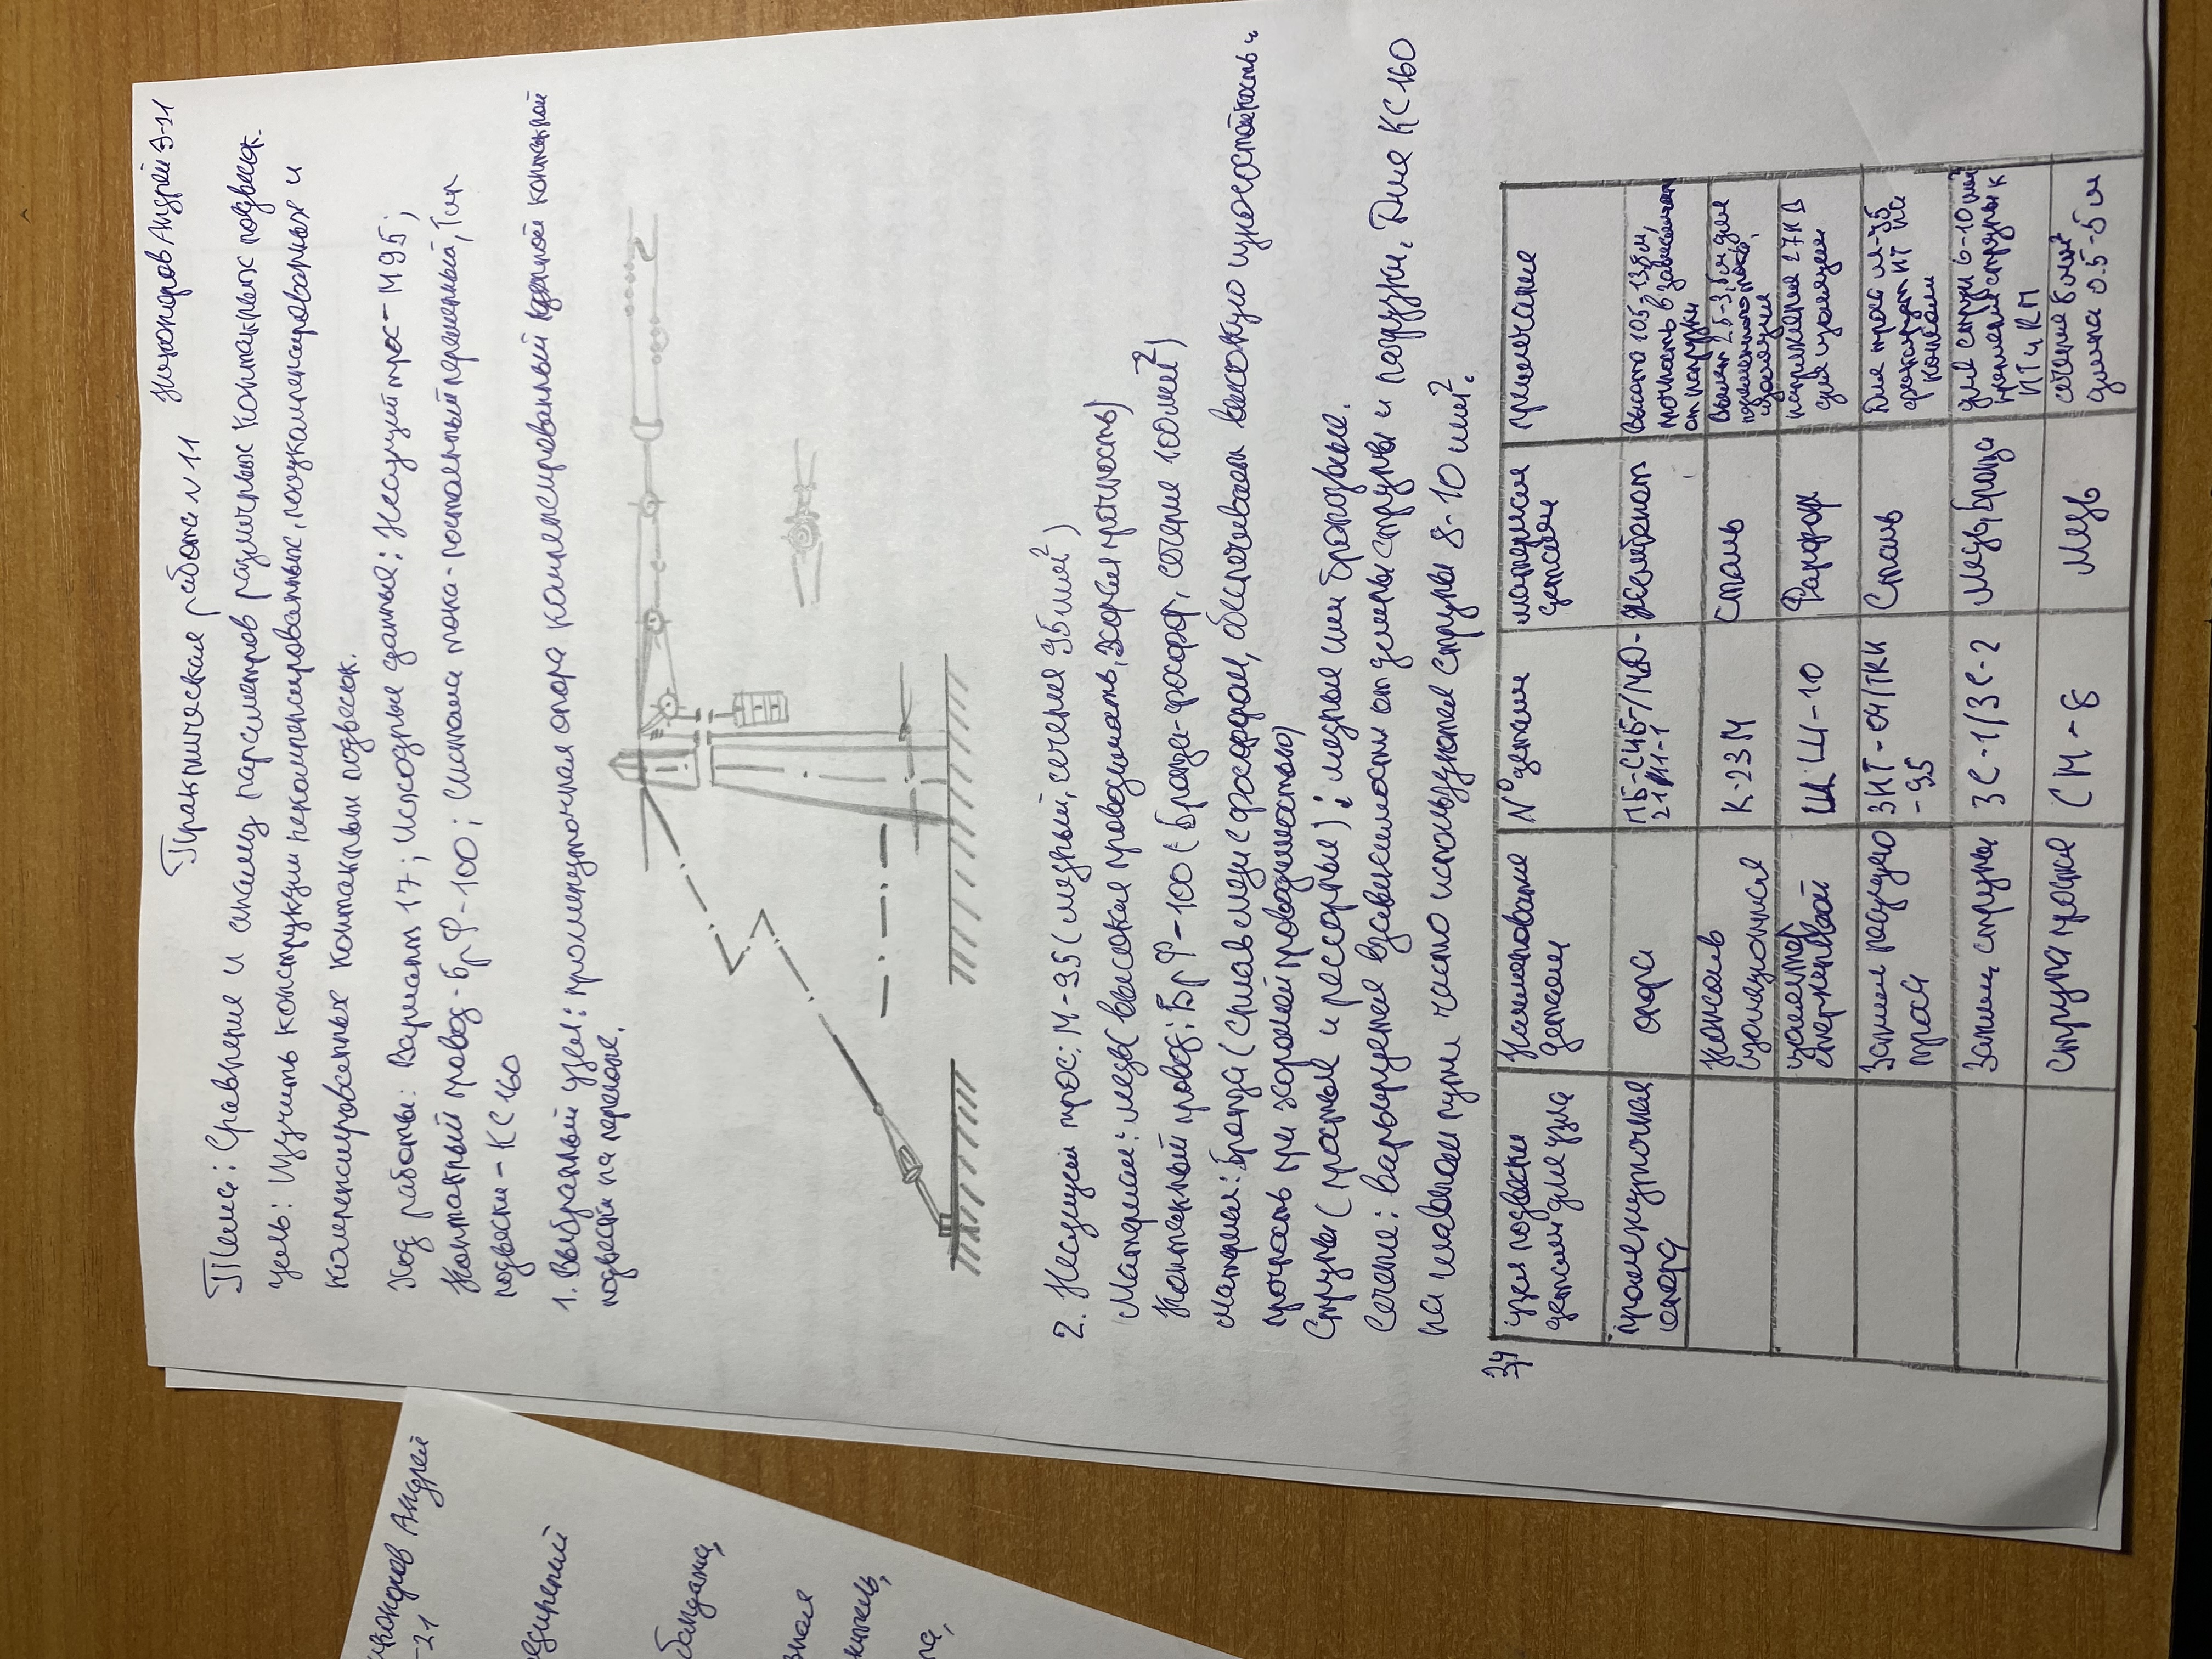 Практическая работа № 11 Никоноров Андрей Э-11
Тема: Сравнение и анализ параметров различных контактных подвесок.
Цель: Изучить конструкции некомпенсированных, полукомпенсированных и
компенсированных контактных подвесок.
Ход работы: Вариант 17; Исходные данные: Несущий трос - М95;
Контактный провод - БрФ-100; Система тока - постоянный переменный, Тип
подвески - КС160
1. Выбранный узел: промежуточная опора компенсированный контактной
подвески на перегоне.
2. Несущий трос: М-95 (медный, сечение 95мм²)
Материал: медь (высокая проводимость, хорошая прочность)
Контактный провод: БрФ-100 (Бронза-фосфор, сечение 100мм²)
Материал: бронза (сплав меди с фосфором, обеспечивает высокую износостойкость и
прочность при хорошей проводимостью)
Струны (простые и рессорные): медные или бронзовые.
Сечение: варьируется в зависимости от длины струны и нагрузки. Для КС160
на главном пути часто используются струны 8-10 мм².
3,4
узел подвески детали для узла | Наименование детали | № детали | материал детали | примечание
промежуточная опора | опора | | железобетон | Высота 10,5-13,5м, мощность в зависимости от нагрузки
Консоль изоляционная | К-23М | Сталь | Вылет 2.5-3.5м для переменного тока, изоляция
изолятор стержневой | ШШ-10 | Фарфор | напряжение 27кВ для изоляции
Зажим несущего троса | ЗНТ-04/ТКИ-95 | Сталь | Для троса М-95 фиксирует НТ на консоли
Зажим струны | ЗС-1/ЗС-2 | Медь, Бронза | для струн 6-10 мм крепление струны к НТ и КП
Струна простая | СМ-8 | Медь | сечение 8мм² длина 0.5-5м
Андрей
-21